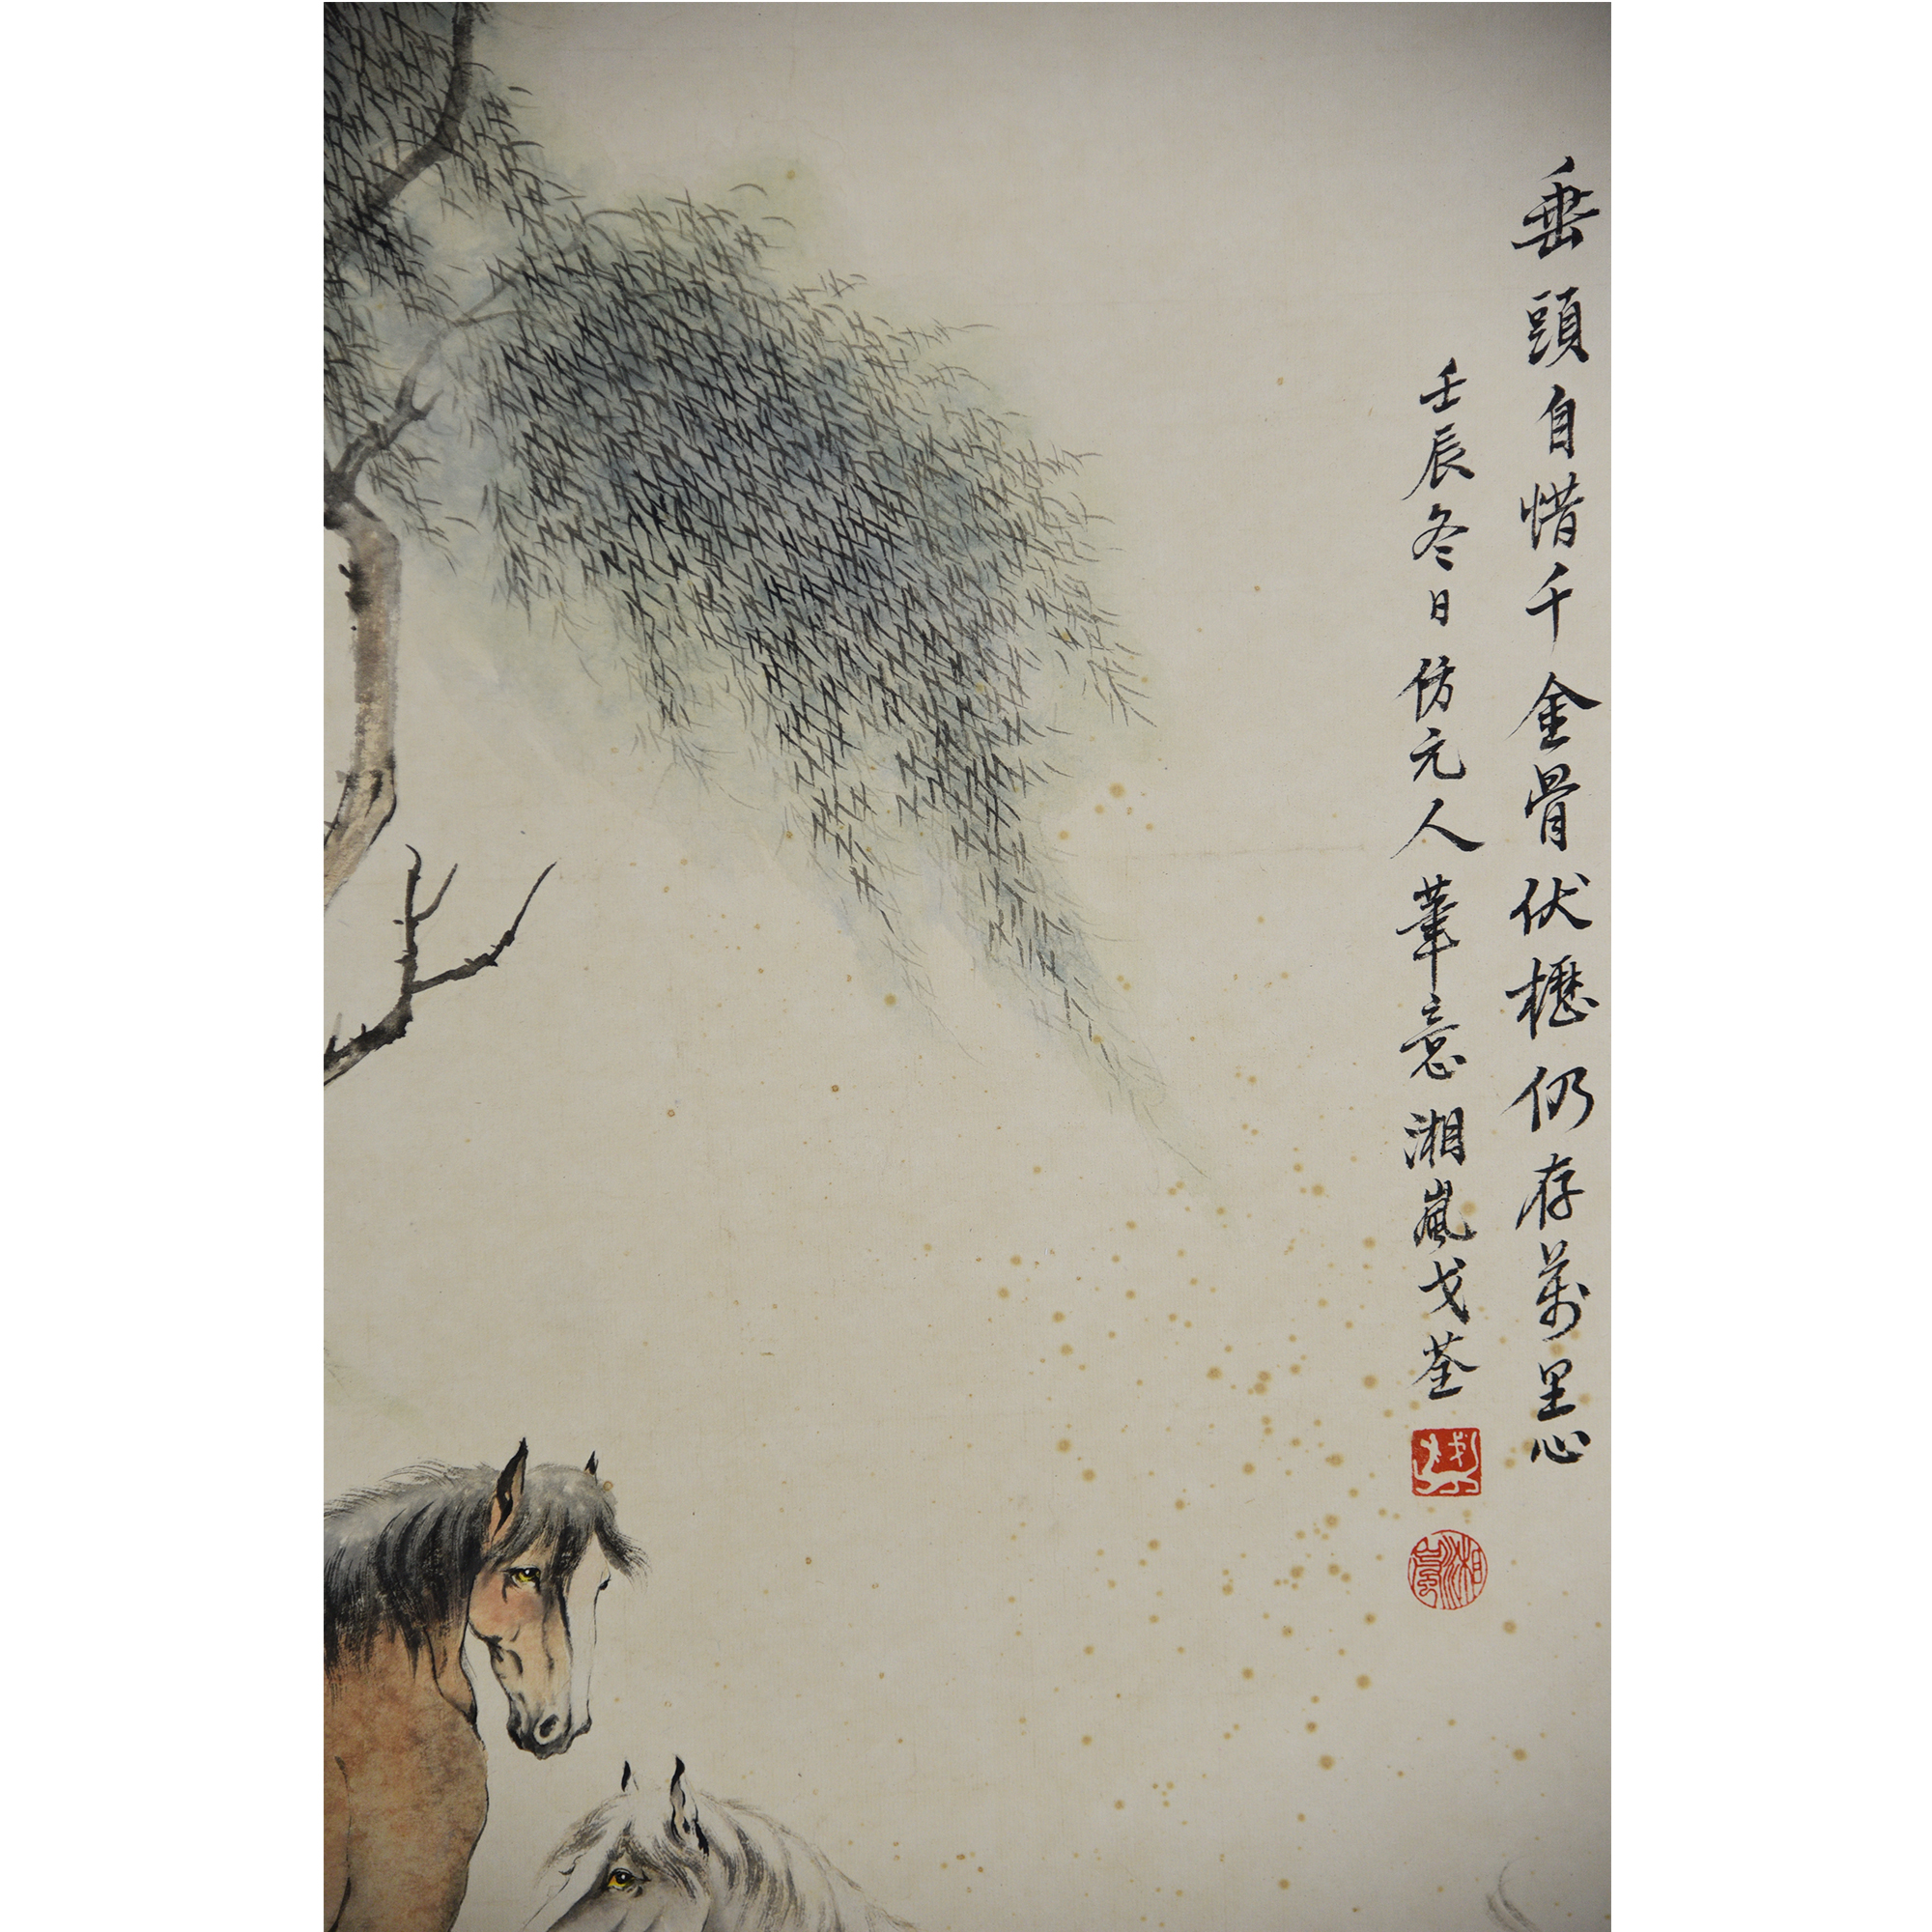 垂頭自惜千金骨伏櫪仍存萬里心
壬辰冬日仿元人筆意湘嵐戈荃
湘嵐